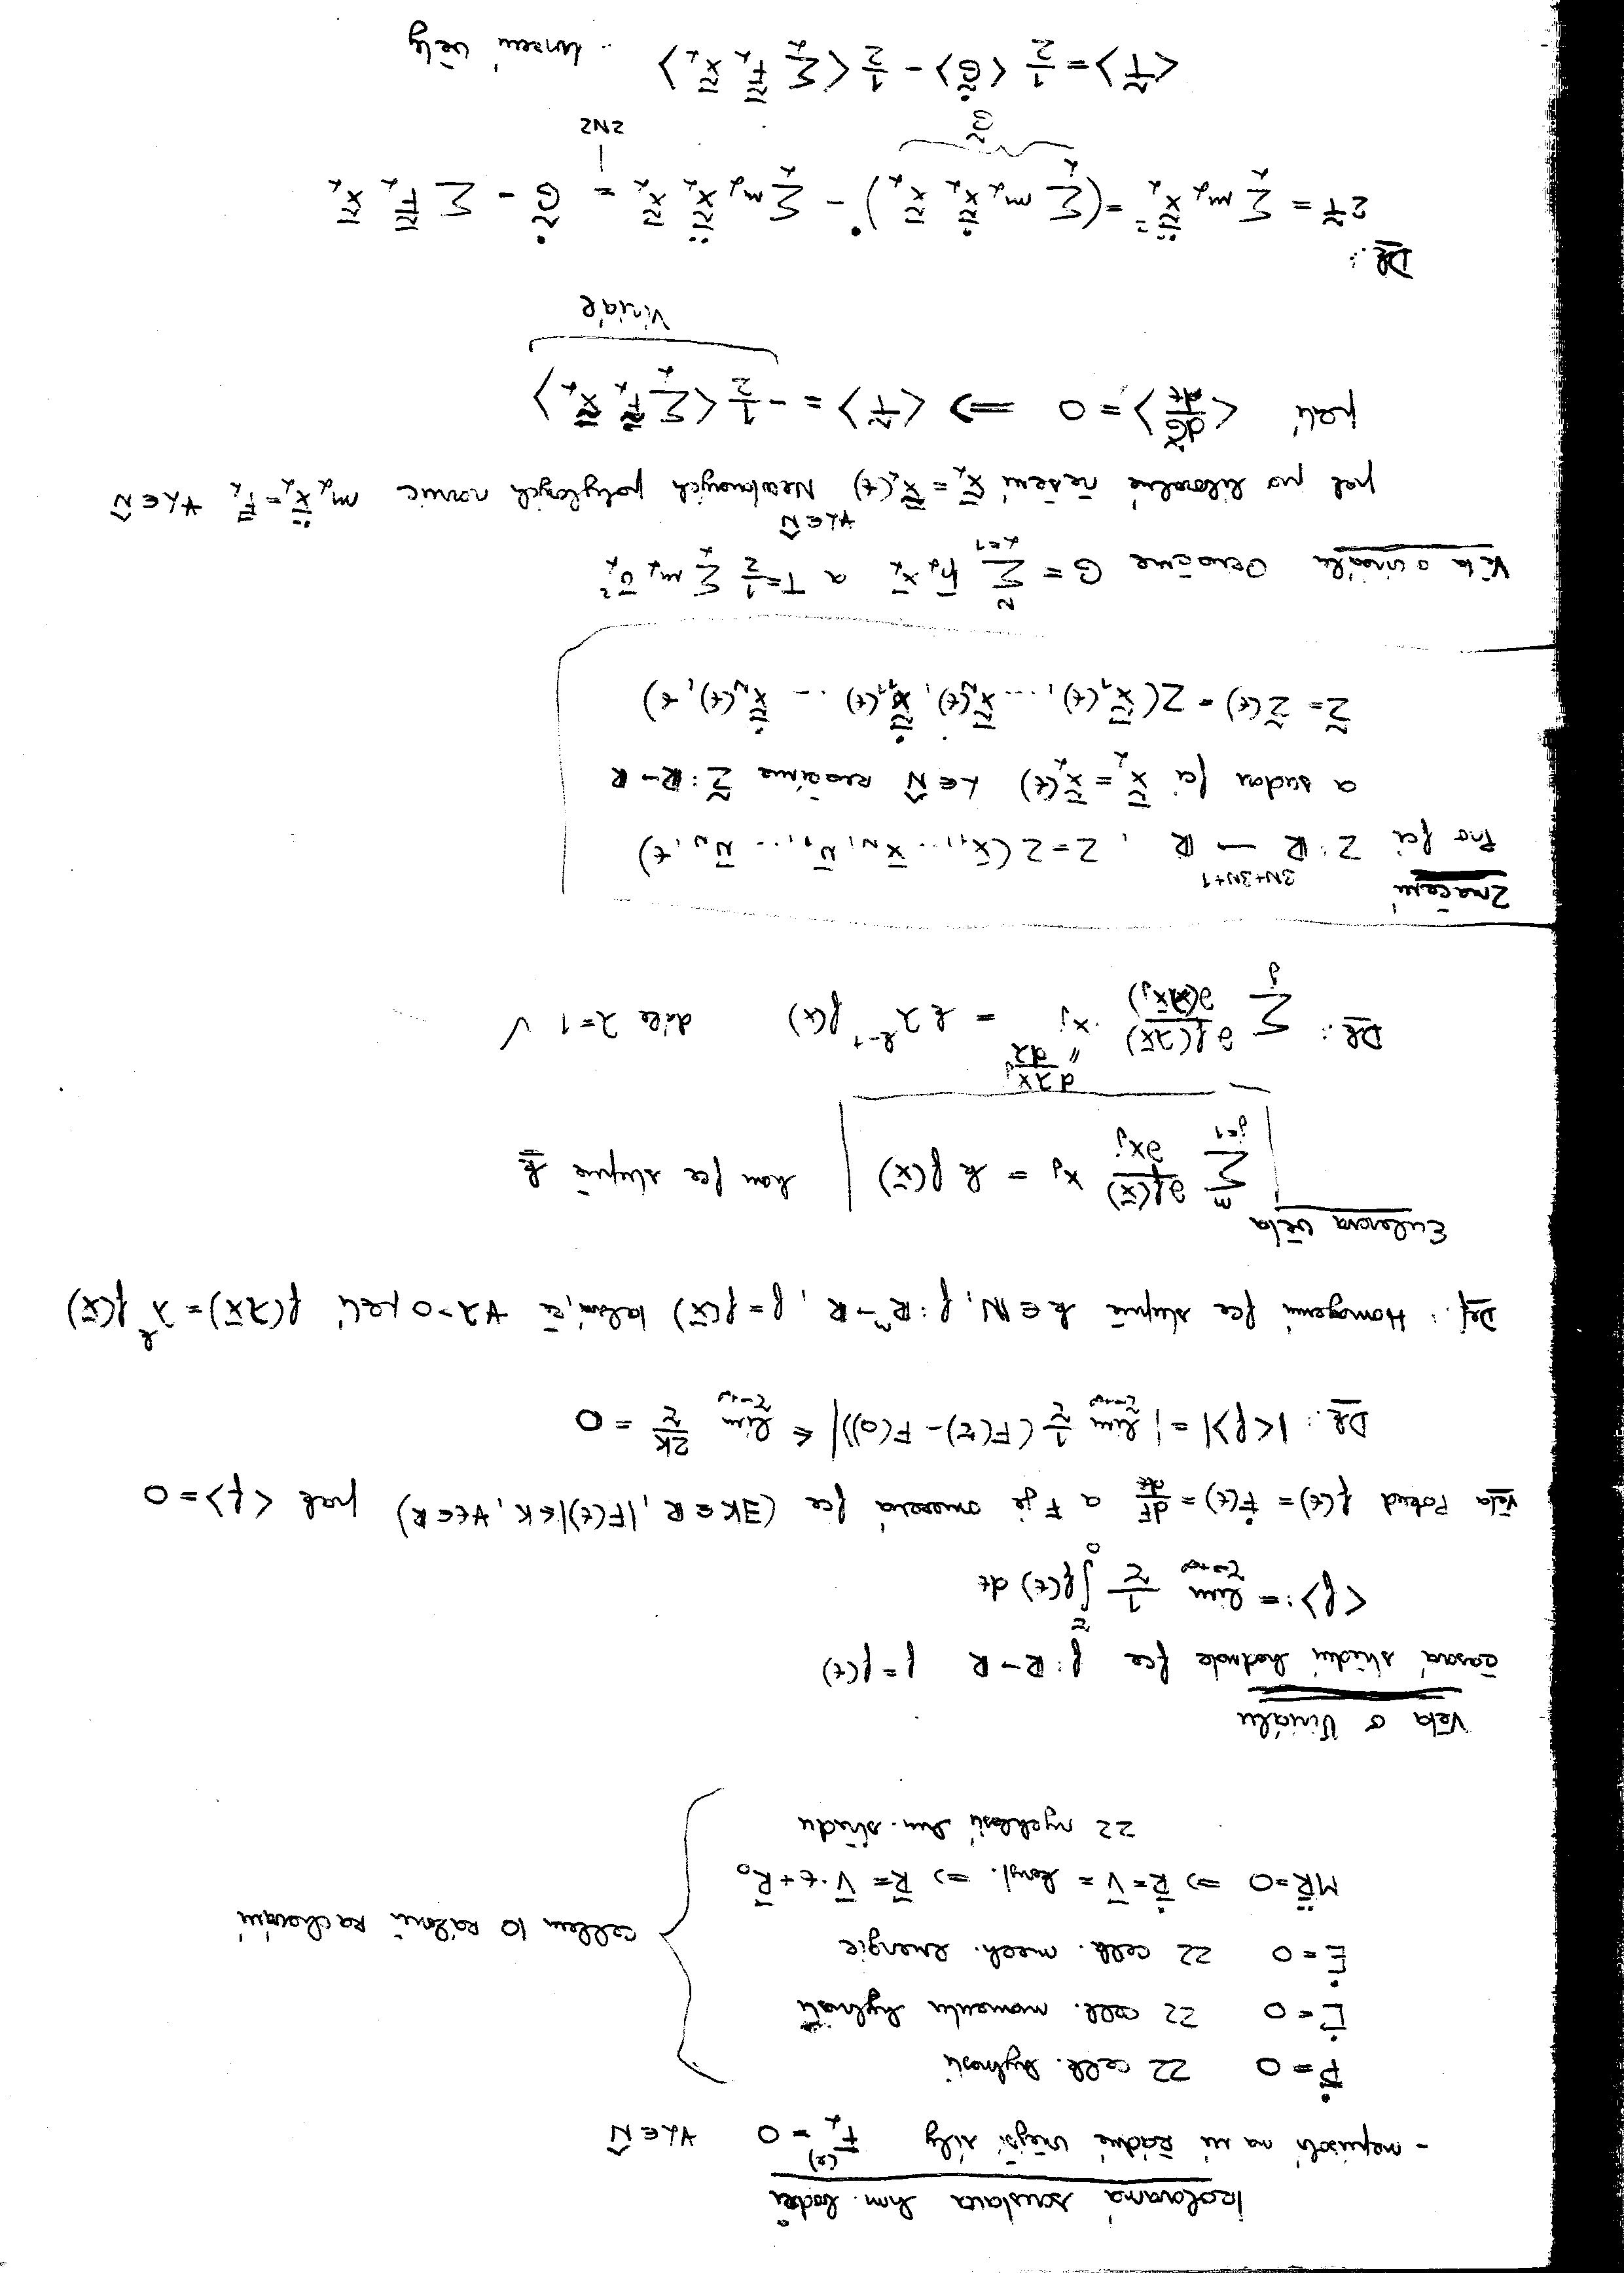 Izolovaná soustava hm. bodů
- nepůsobí na ni žádné vnější síly F_α^(e) = 0 ∀α∈N̂
Ṗ = 0 ZZ celk. hybnosti
L̇ = 0 ZZ celk. momentu hybnosti
Ė = 0 ZZ celk. mech. energie
celkem 10 zákonů zachování
MR̈ = 0 ⇒ Ṙ = V̄ = konst. ⇒ R̄ = V̄·t + R̄₀
ZZ rychlosti hm. středu
Věta o Viriálu
časová střední hodnota fce f: R→R f = f(t)
<f> := lim_{τ→+∞} 1/τ ∫₀^τ f(t) dt
Věta Pokud f(t) = Ḟ(t) = dF/dt a F je omezená fce (∃K∈R, |F(t)|≤K, ∀t∈R) pak <f> = 0
Dk.: |<f>| = |lim_{τ→+∞} 1/τ (F(τ) - F(0))| ≤ lim_{τ→+∞} 2K/τ = 0
Def.: Homogenní fce stupně k∈N, f: Rⁿ→R, f = f(x̄) taková, že ∀λ>0 platí f(λx̄) = λ^k f(x̄)
Eulerova věta
∑_{j=1}^{n} ∂f(x̄)/∂x_j x_j = k f(x̄) hom fce stupně k
Dk.: ∑_j ∂f(λx̄)/∂(λx_j) · x_j = k λ^{k-1} f(x) dále λ=1 ✓
" dλx_j/dλ
Značení
Pro fci Z: R^{3N+3N+1} → R, Z = Z(x̄₁,... x̄_N, v̄₁,... v̄_N, t)
a sadou fcí x̃_α = x̃_α(t) α∈N̂ značíme Z̃: R→R
Z̃ = Z̃(t) = Z(x̃₁(t),... x̃_N(t), ẋ̃₁(t) ... ẋ̃_N(t), t)
Věta o viriálu Označme G = ∑_{α=1}^{N} p̄_α x̄_α a T = 1/2 ∑_α m_α v̄_α²
∀α∈N̂
pak pro libovolné řešení x̃_α = x̃_α(t) Newtonových pohybových rovnic m_α ẍ_α = F̄_α ∀α∈N̂
platí <dG̃/dt> = 0 ⇒ <T̃> = -1/2 <∑_α F̃_α x̃_α>
Viriál
Dk.:
2T̃ = ∑_α m_α ẋ̃_α² = (∑_α m_α ẋ̃_α x̃_α)˙ - ∑_α m_α ẍ̃_α x̃_α = G̃˙ - ∑ F̃_α x̃_α
G̃
2NZ
<T̃> = 1/2 <G̃˙> - 1/2 <∑_α F̃_α x̃_α> .. tvrzení věty